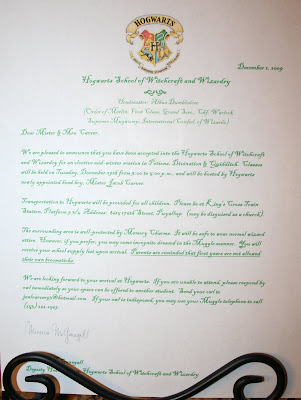 HOGWARTS
December 1, 2009
Hogwarts School of Witchcraft and Wizardry
Headmaster: Albus Dumbledore
(Order of Merlin, First Class, Grand Sorc., Chf. Warlock,
Supreme Mugwump, International Confed. of Wizards)
Dear Mister & Miss Carver,
We are pleased to announce that you have been accepted into the Hogwarts School of Witchcraft
and Wizardry for an elective mid-winter session in Potions, Divination & Quidditch. Classes
will be held on Tuesday, December 29th from to and will be hosted by Hogwarts
newly appointed head boy, Mister Jacob Carver.
Transportation to Hogwarts will be provided for all children. Please be at King's Cross Train
Station, Platform 9 3/4, Address: Street, Puyallup. (may be disguised as a church).
The surrounding area is well-protected by Memory Charms. It will be safe to wear normal wizard
attire. However, if you prefer, you may come incognito dressed in the Muggle manner. You will
receive your school supply list upon arrival. Parents are reminded that first years are not allowed
their own broomsticks.
We are looking forward to your arrival at Hogwarts. If you are unable to attend, please respond by
owl immediately so your space can be offered to another student. Send your owl to
@hotmail.com. If your owl is indisposed, you may use your Muggle telephone to call
Minerva McGonagall
Deputy Hogwarts School of Witchcraft and Wizardry